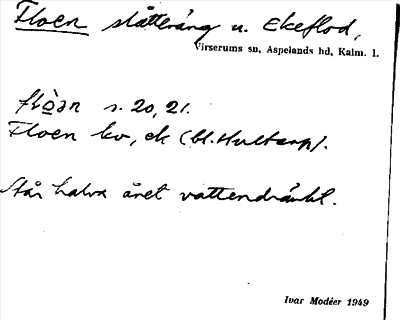 Floen slåtteräng u. Ekeflod,
Virserums sn, Aspelands hd, Kalm. l.
flo̱̊ən s. 20, 21.
Floen kv, ek (bl. Hultarp).
Står halva året vattendränkt.
Ivar Modéer 1949